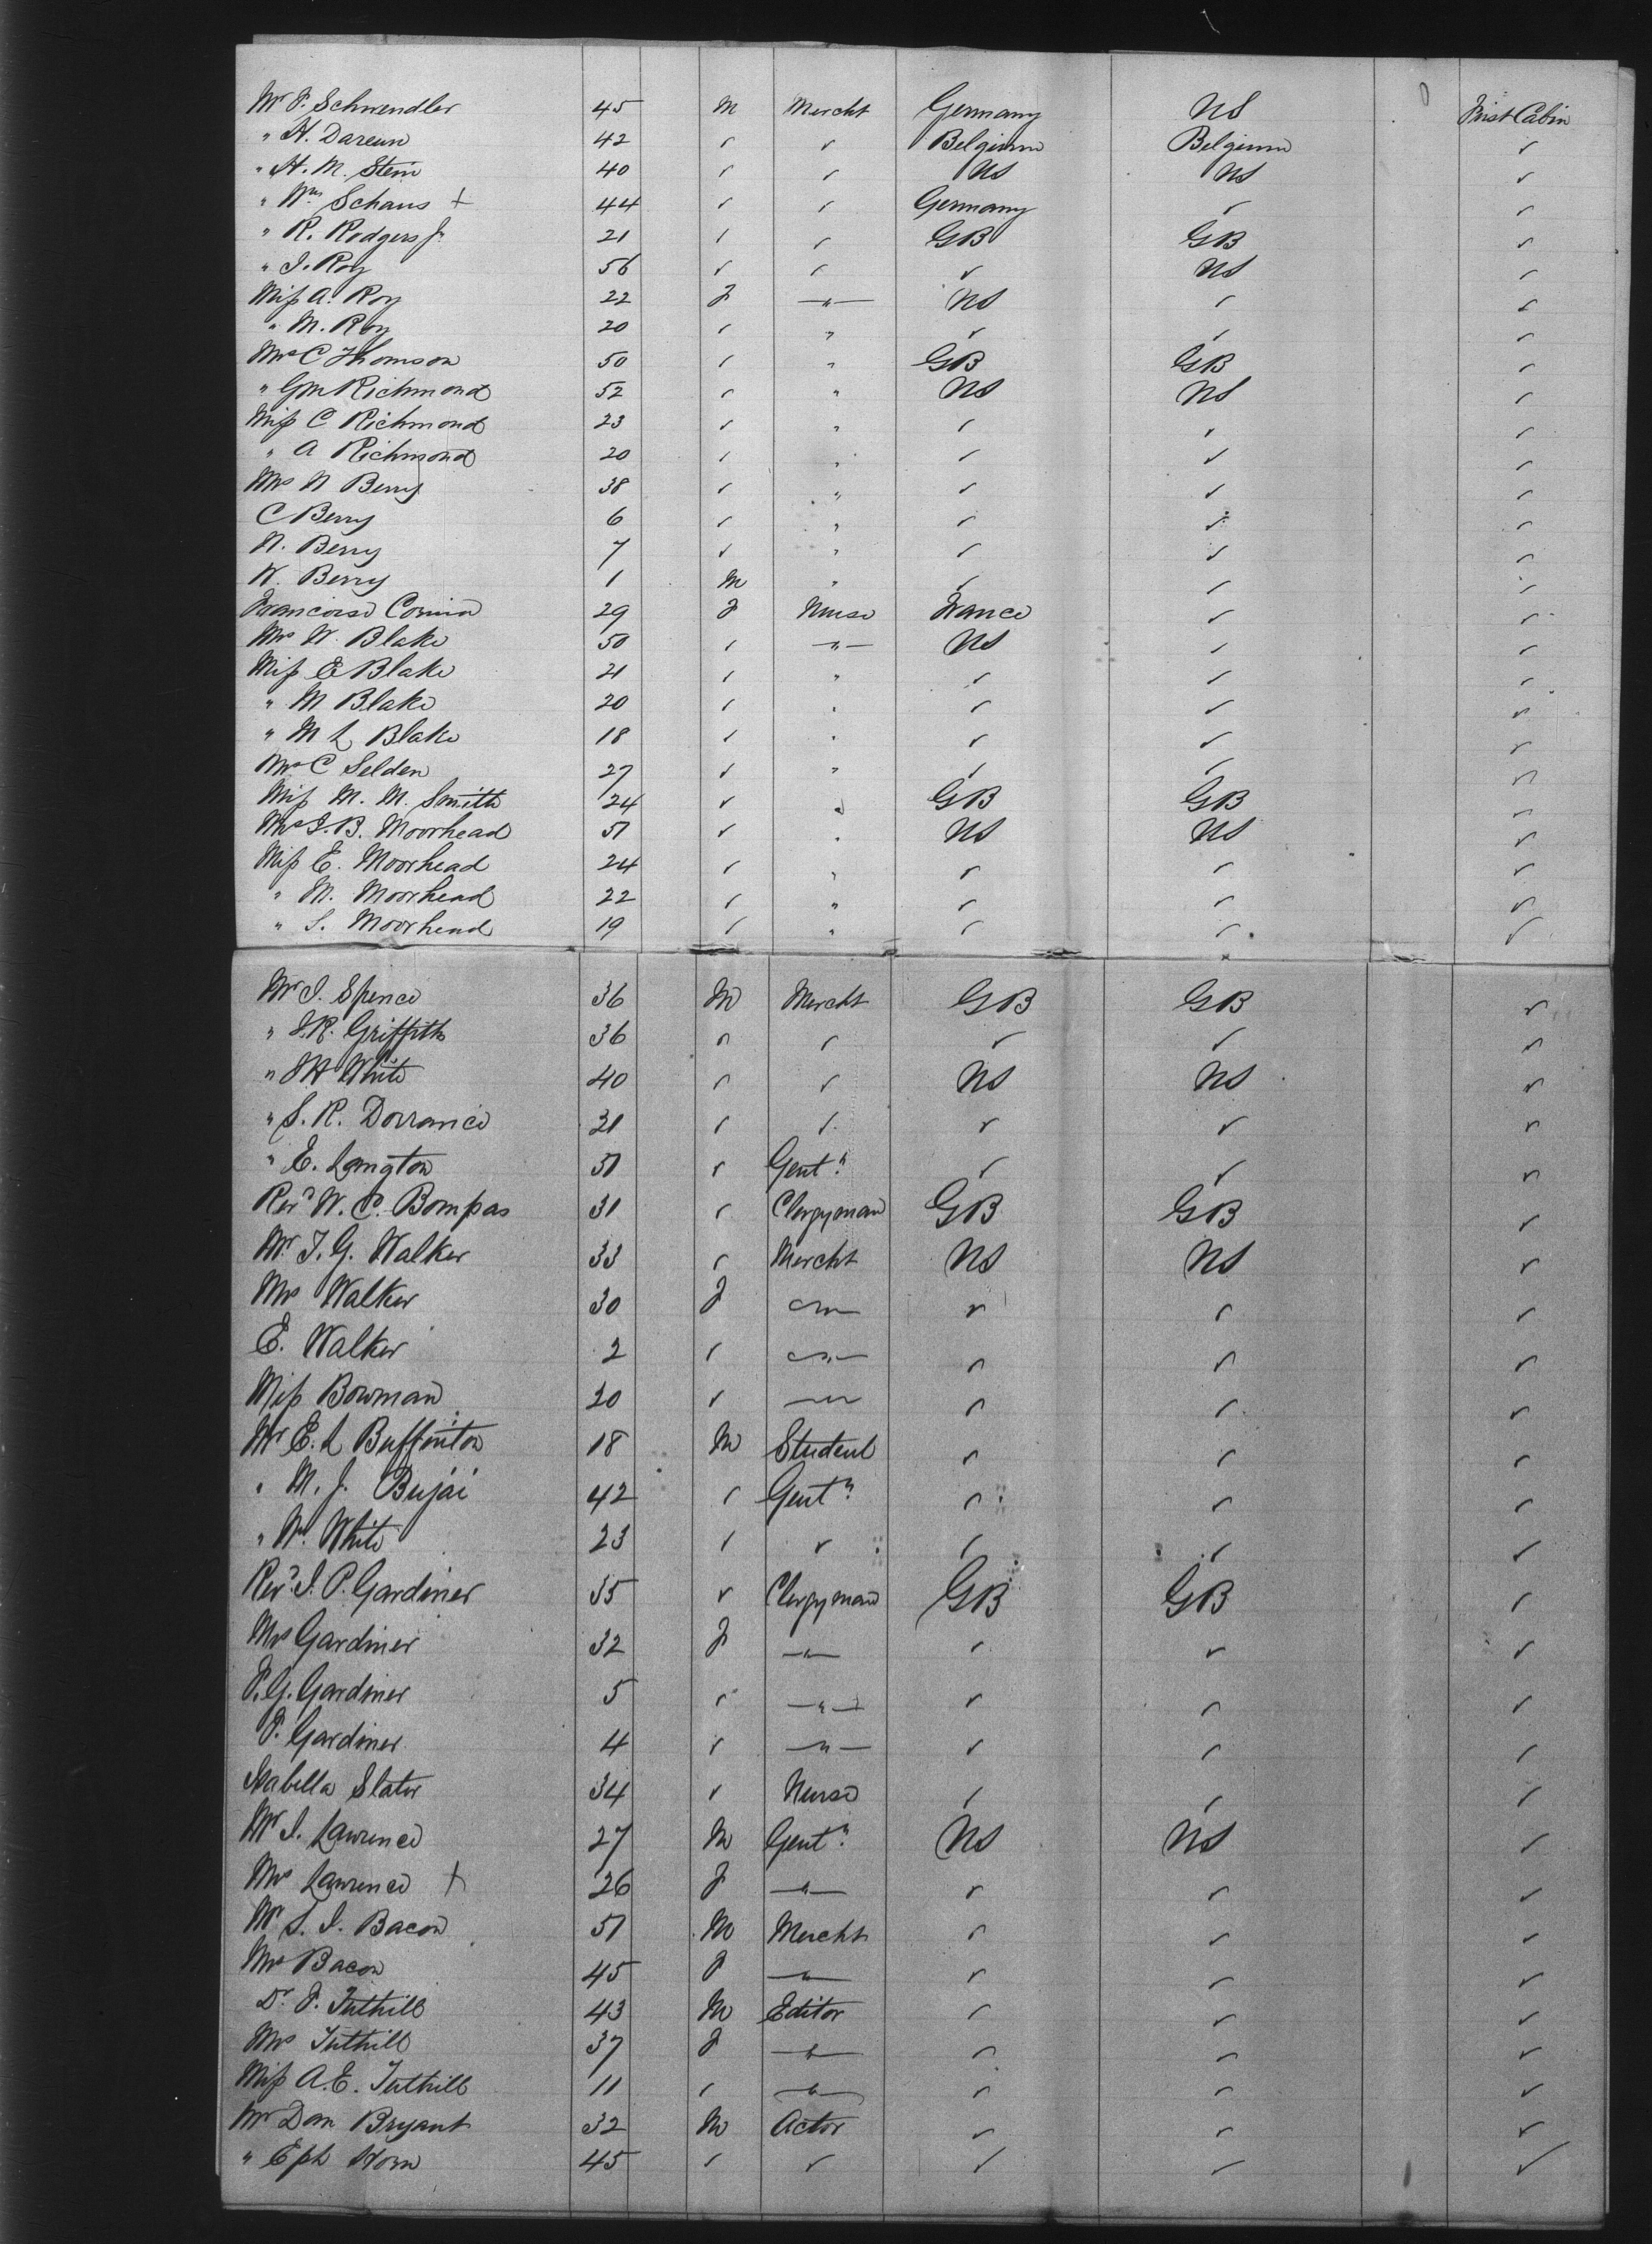 Mr F. Schwendler 45 M Mercht Germany US First Cabin
" H. Dareun 42 ✓ ✓ Belgium Belgium ✓
" H. M. Stein 40 ✓ ✓ US US ✓
" Wm Schaus + 44 ✓ ✓ Germany ✓ ✓
" R. Rodgers Jr 21 ✓ ✓ GB GB ✓
" J. Roy 56 ✓ ✓ ✓ US ✓
Miss A. Roy 22 F " US ✓ ✓
" M. Roy 20 ✓ " ✓ ✓ ✓
Mrs C Thomson 50 ✓ " GB GB ✓
" Gm Richmond 52 ✓ " US US ✓
Miss C Richmond 23 ✓ " ✓ ✓ ✓
" A Richmond 20 ✓ " ✓ ✓ ✓
Mrs N Berry 38 ✓ " ✓ ✓ ✓
C Berry 6 ✓ " ✓ ✓ ✓
N. Berry 7 ✓ " ✓ ✓ ✓
W. Berry 1 M " ✓ ✓ ✓
Francoise 29 F Nurse France ✓ ✓
Mrs W. Blake 50 ✓ " US ✓ ✓
Miss E Blake 21 ✓ " ✓ ✓ ✓
" M Blake 20 ✓ " ✓ ✓ ✓
" M L Blake 18 ✓ " ✓ ✓ ✓
Mrs C Selden 27 ✓ " ✓ ✓ ✓
Miss M. M. Smith 24 ✓ " GB GB ✓
Mrs J. B. Moorhead 51 ✓ " US US ✓
Miss E. Moorhead 24 ✓ " ✓ ✓ ✓
" M. Moorhead 22 ✓ " ✓ ✓ ✓
" S. Moorhead 19 ✓ " ✓ ✓ ✓
Mr J. Spence 36 M Mercht GB GB ✓
" J. R. Griffith 36 ✓ ✓ ✓ ✓ ✓
" J H White 40 ✓ ✓ US US ✓
" S. R. Dorrance 21 ✓ ✓ ✓ ✓ ✓
" E. Langton 51 ✓ Gentn ✓ ✓ ✓
Revd W. C. Bompas 31 ✓ Clergyman GB GB ✓
Mr T. G. Walker 33 ✓ Mercht US US ✓
Mrs Walker 30 F " ✓ ✓ ✓
E. Walker 2 ✓ " ✓ ✓ ✓
Miss Bowman 20 ✓ " ✓ ✓ ✓
Mr E. L Buffinton 18 M Student ✓ ✓ ✓
" M. J. Bujai 42 ✓ Gentn ✓ ✓ ✓
" W. White 23 ✓ ✓ ✓ ✓ ✓
Revd J. P. Gardiner 35 ✓ Clergyman GB GB ✓
Mrs Gardiner 32 F " ✓ ✓ ✓
F. G. Gardiner 5 ✓ " ✓ ✓ ✓
F. Gardiner 4 ✓ " ✓ ✓ ✓
Isabella Slater 34 ✓ Nurse ✓ ✓ ✓
Mr J. Lawrence 27 M Gentn US US ✓
Mrs Lawrence + 26 F " ✓ ✓ ✓
Mr S. J. Bacon 51 M Mercht ✓ ✓ ✓
Mrs Bacon 45 F " ✓ ✓ ✓
Dr F. Tuthill 43 M Editor ✓ ✓ ✓
Mrs Tuthill 37 F " ✓ ✓ ✓
Miss A. E. Tuthill 11 ✓ " ✓ ✓ ✓
Mr Dan Bryant 32 M Actor ✓ ✓ ✓
" Eph Horn 45 ✓ ✓ ✓ ✓ ✓